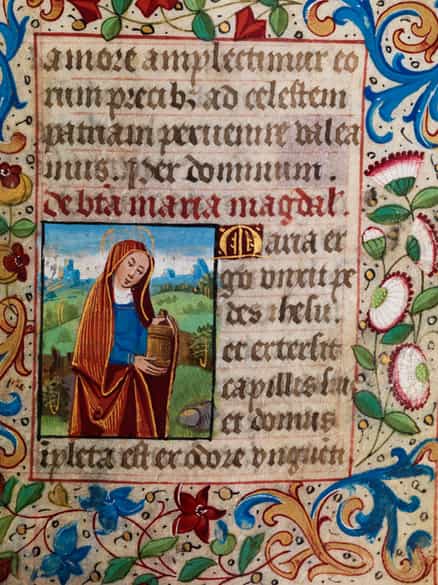 amore amplectimur eo
rum precib; ad celestem
patriam peruenire valea
mus. Per dominum.
de bta maria magdal'.
Maria er
go vnxit pe
des ihesu.
et extersit
capillis suis
et domus
ipleta est ex odore vnguen